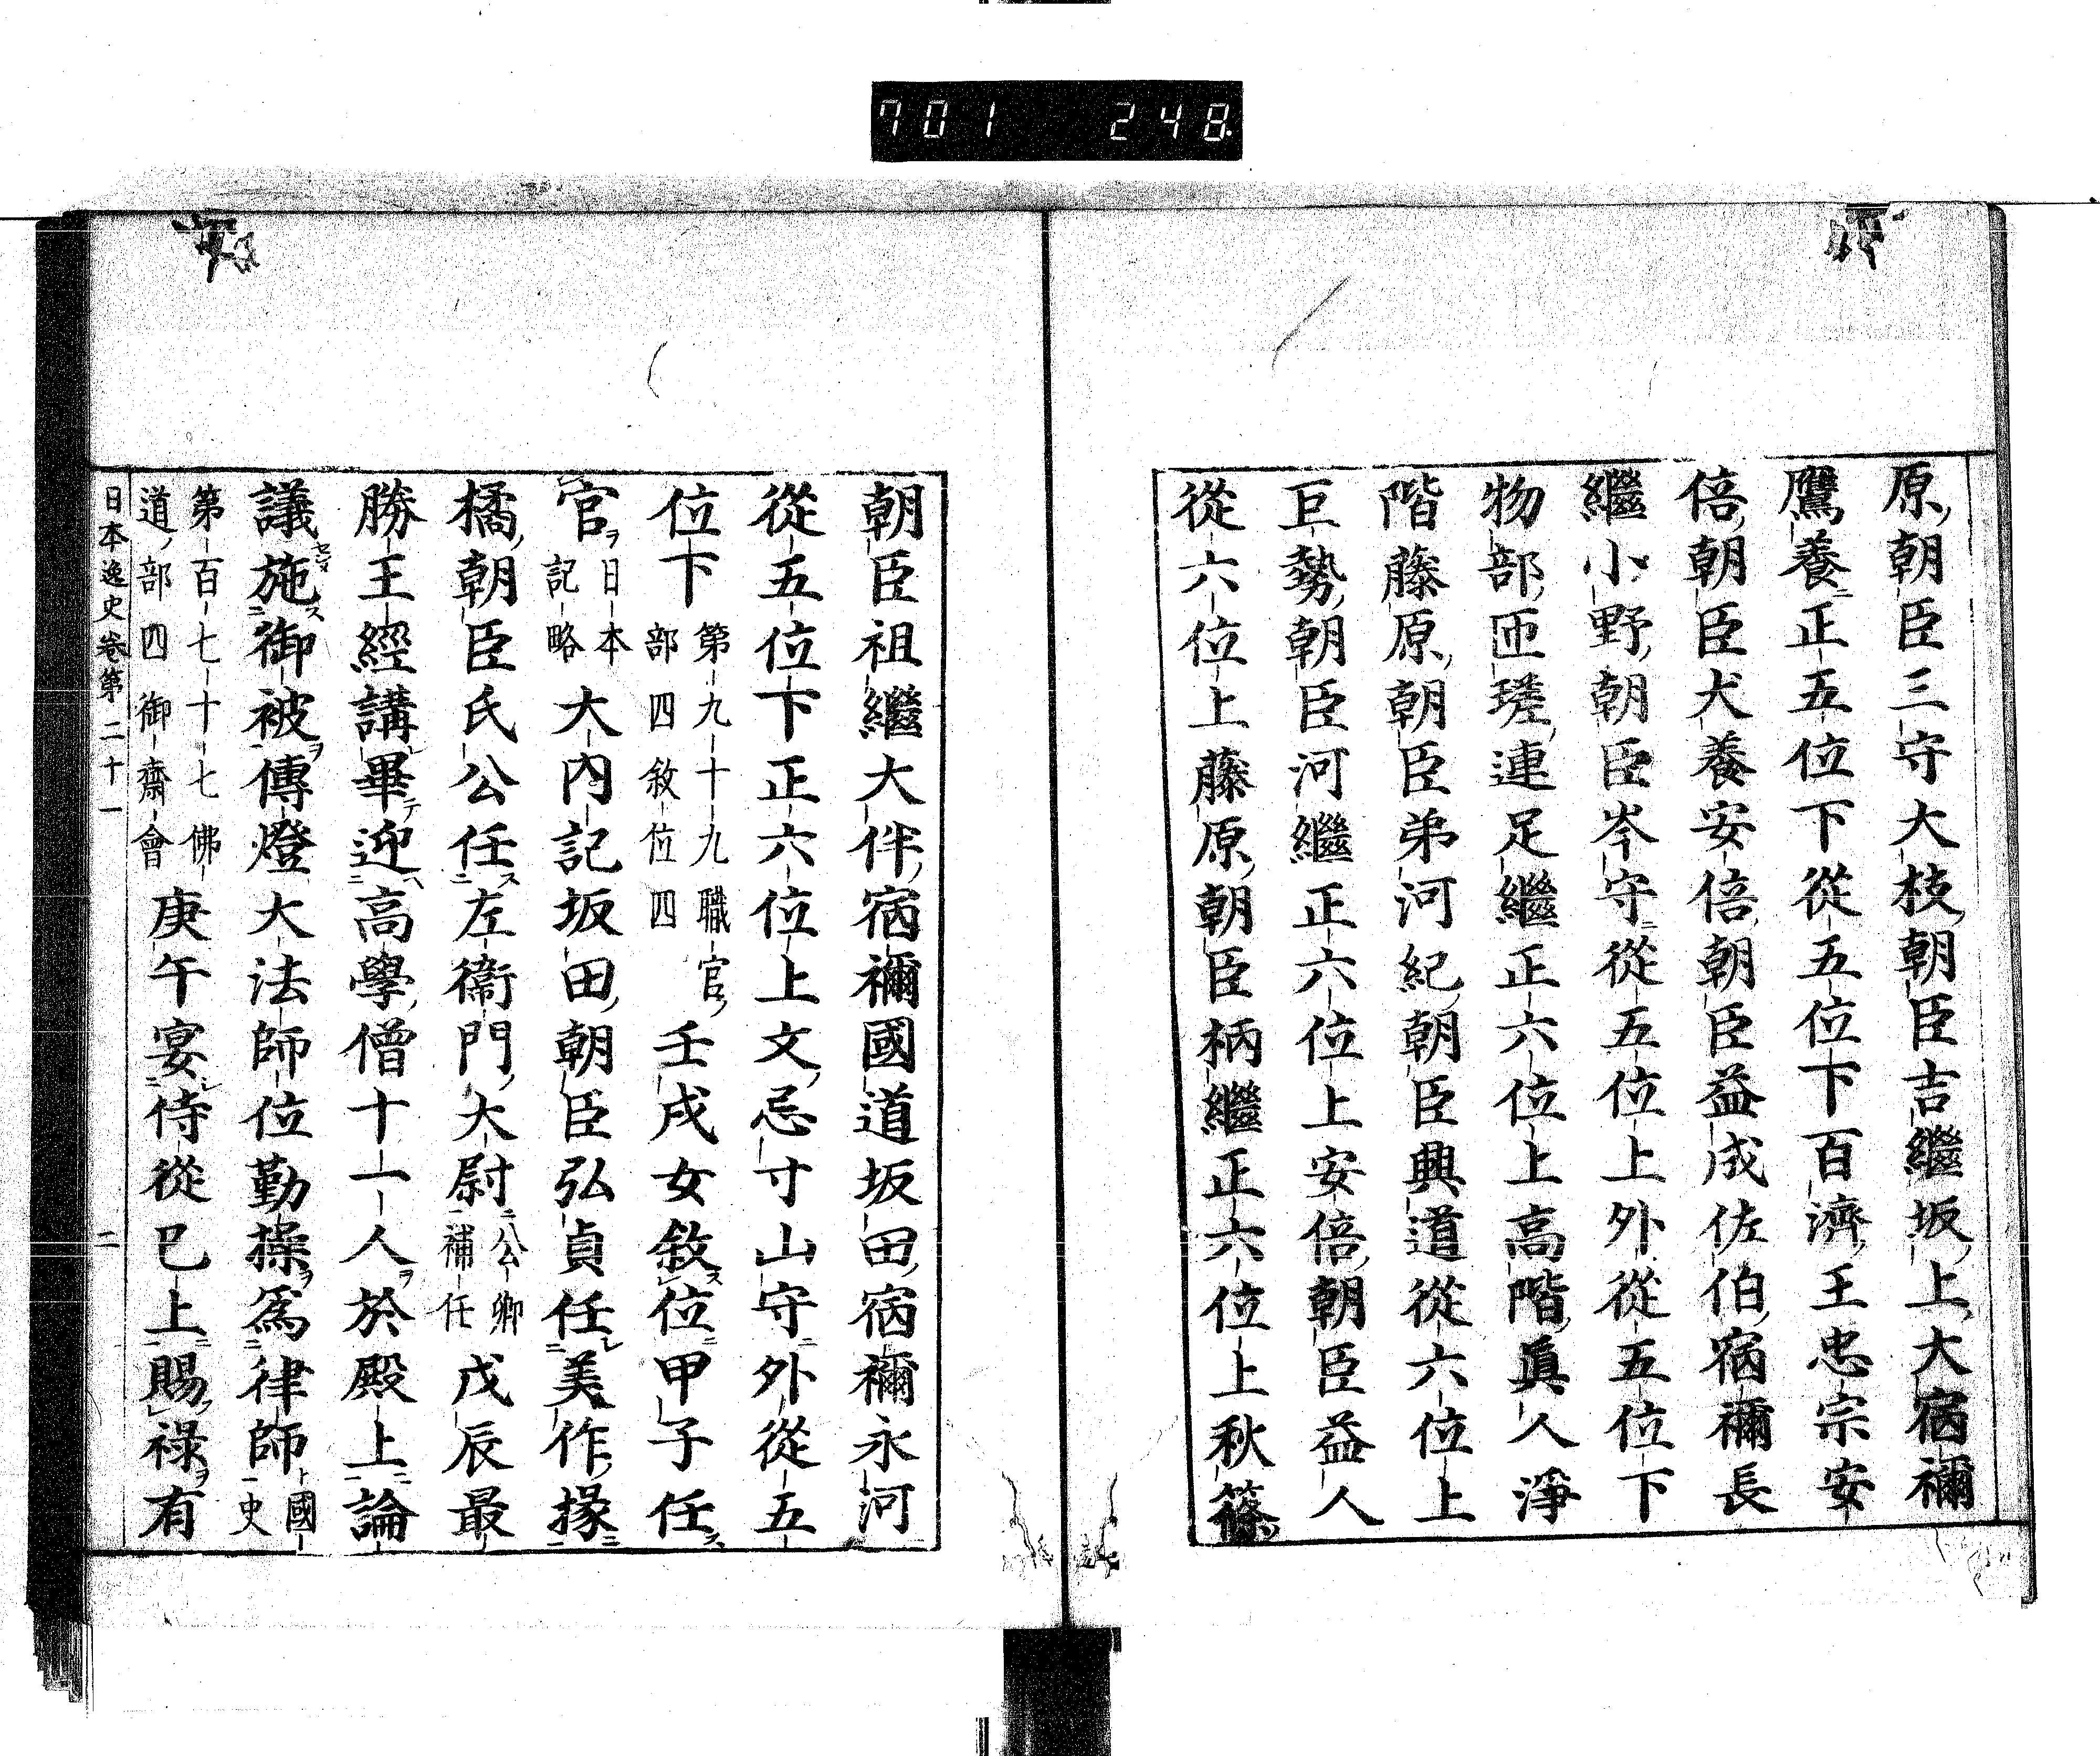 701 248
原朝臣三守大枝朝臣吉繼坂上大宿禰
鷹養正五位下從五位下百濟王忠宗安
倍朝臣犬養安倍朝臣益成佐伯宿禰長
繼小野朝臣岑守從五位上外從五位下
物部匝瑳連足繼正六位上高階眞人淨
階藤原朝臣弟河紀朝臣興道從六位上
巨勢朝臣河繼正六位上安倍朝臣益人
從六位上藤原朝臣柄繼正六位上秋篠
朝臣祖繼大伴宿禰國道坂田宿禰永河
從五位下正六位上文忌寸山守外從五
位下
第九十九職官
部四敘位四
壬戌女敘位甲子任
官
日本
記略
大內記坂田朝臣弘貞任美作掾
橘朝臣氏公任左衞門大尉
公卿
補任
戊辰最
勝王經講畢迎高學僧十一人於殿上論
議施御被傳燈大法師位勤操爲律師
國
史
第百七十七佛
道部四御齋會
庚午宴侍從已上賜祿有
日本逸史卷第二十一 二